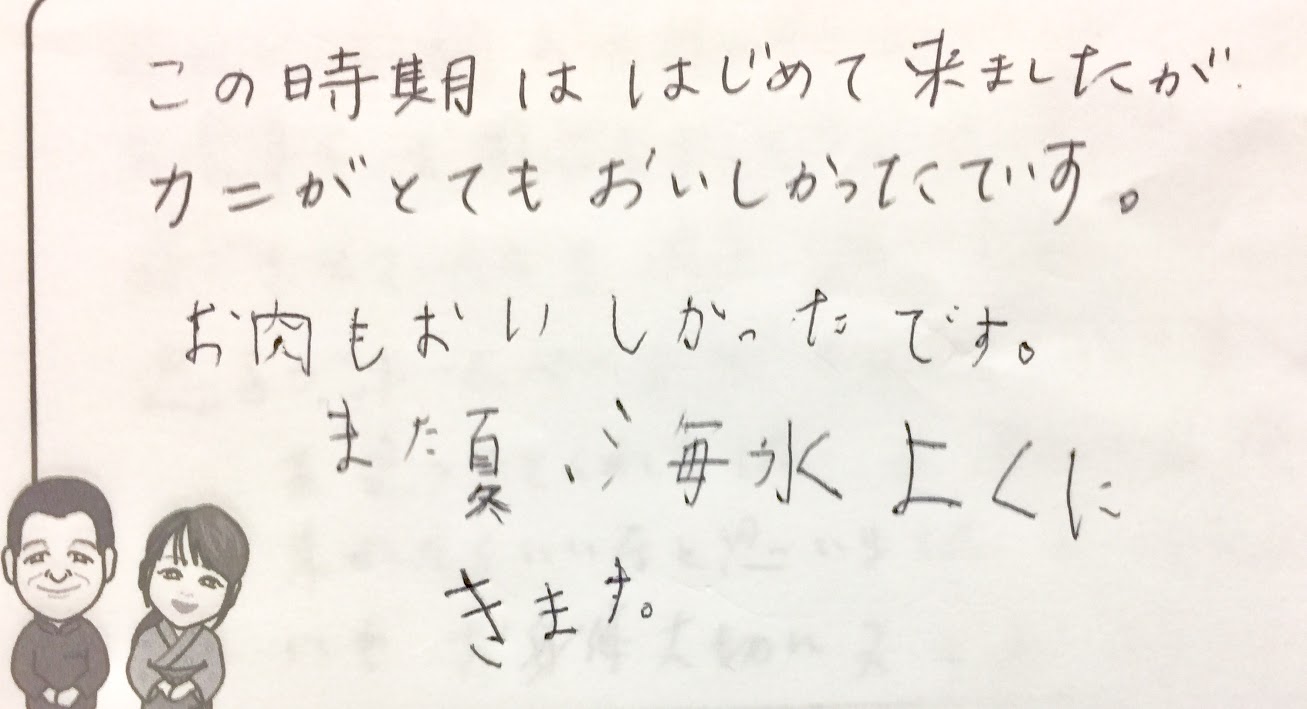 この時期ははじめて来ましたが
カニがとてもおいしかったです。
お肉もおいしかったです。
また夏、海水よくに
きます。